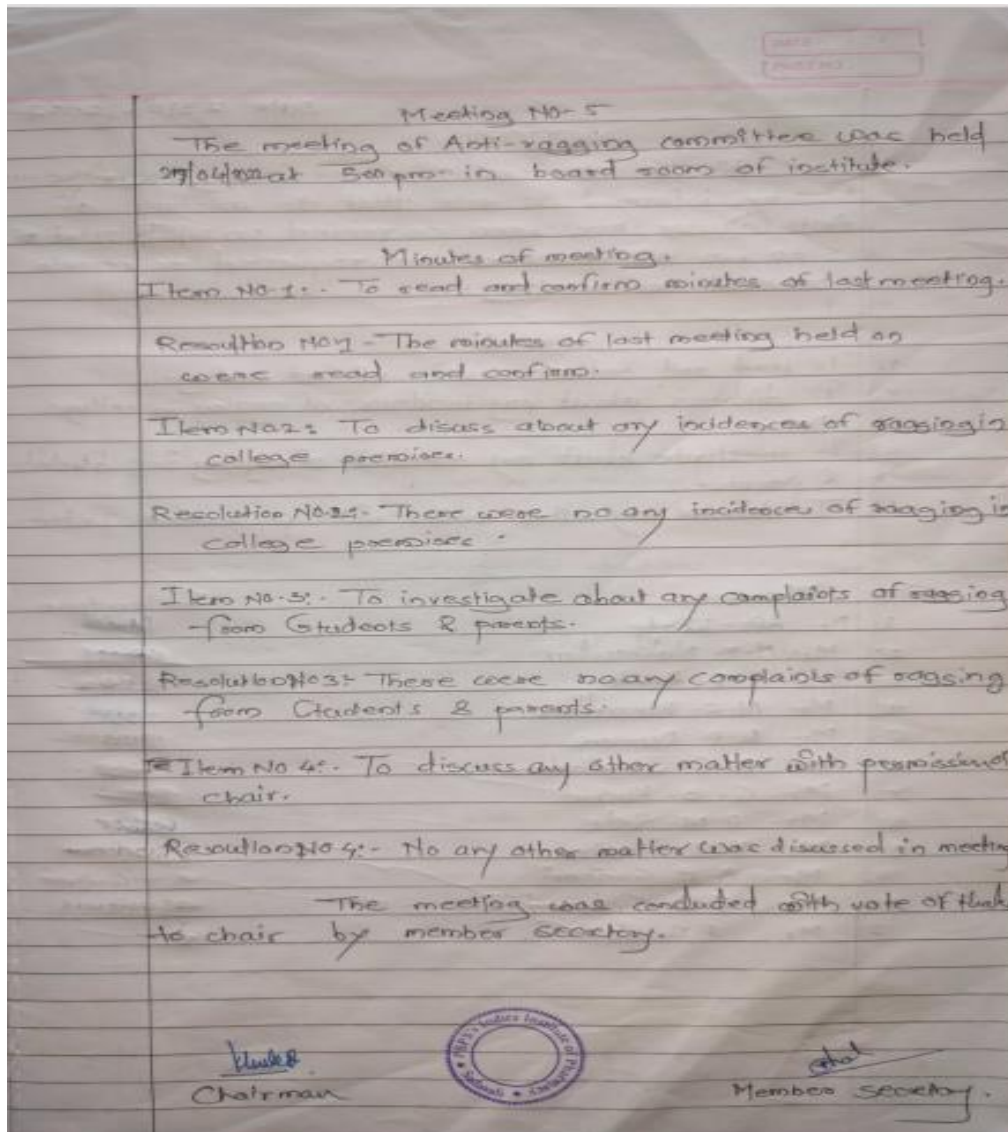 DATE
Meeting No- 5
The meeting of Anti-ragging committee was held
at 5:00 pm in board room of institute.
Minutes of meeting.
Item No-1:- To read and confirm minutes of last meeting.
Resoultion No1 - The minutes of last meeting held on
were read and confirm.
Item No2: To disass about any incidences of ragging in
college premises.
Resolution No.2:- There were no any incidences of ragging in
college premises.
Item No-3:- To investigate about any complaints of ragging
from Students & parents.
Resolution No3:- There were no any complaints of ragging
from Students & parents.
Item No 4:- To discuss any other matter with permission of
chair.
Resoution No 4:- No any other matter was discussed in meeting
The meeting was conducted with vote of thank
to chair by member secretory.
Institute of Pharmacy
Chairman
Member secretory.